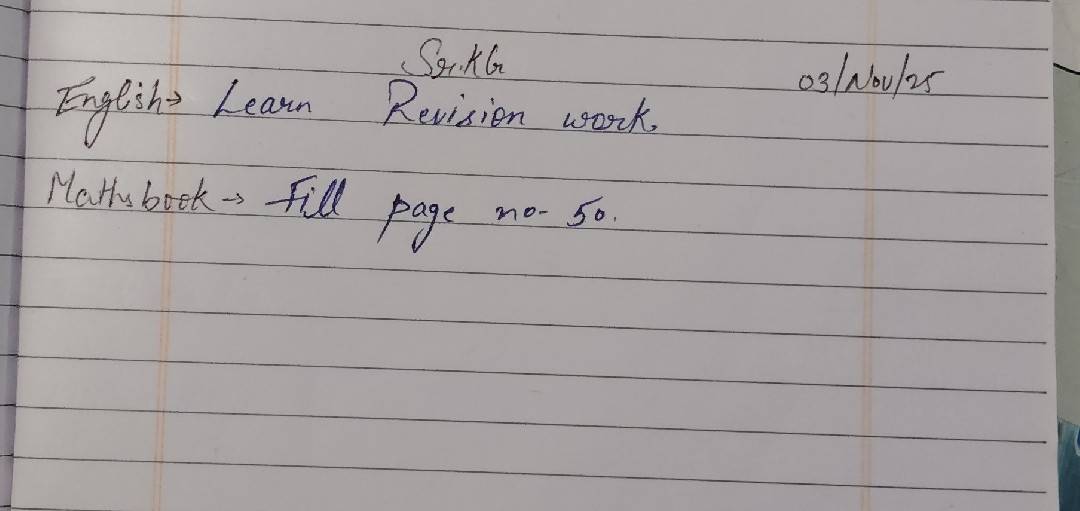 Sr.KG 03/Nov/25
English→ Learn Revision work.
Maths book → Fill page no- 50.